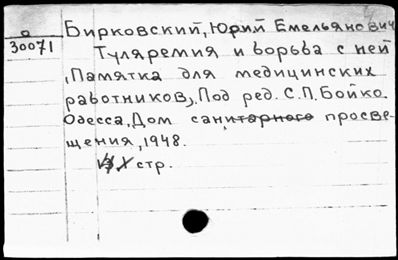 Бирковский, Юрий Емельянович
30071
Туляремия и борьба с ней
,Памятка для медицинских
работников,. Под ред. С.П. Бойко.
Одесса, Дом санитарного просве-
щения, 1948.
стр.